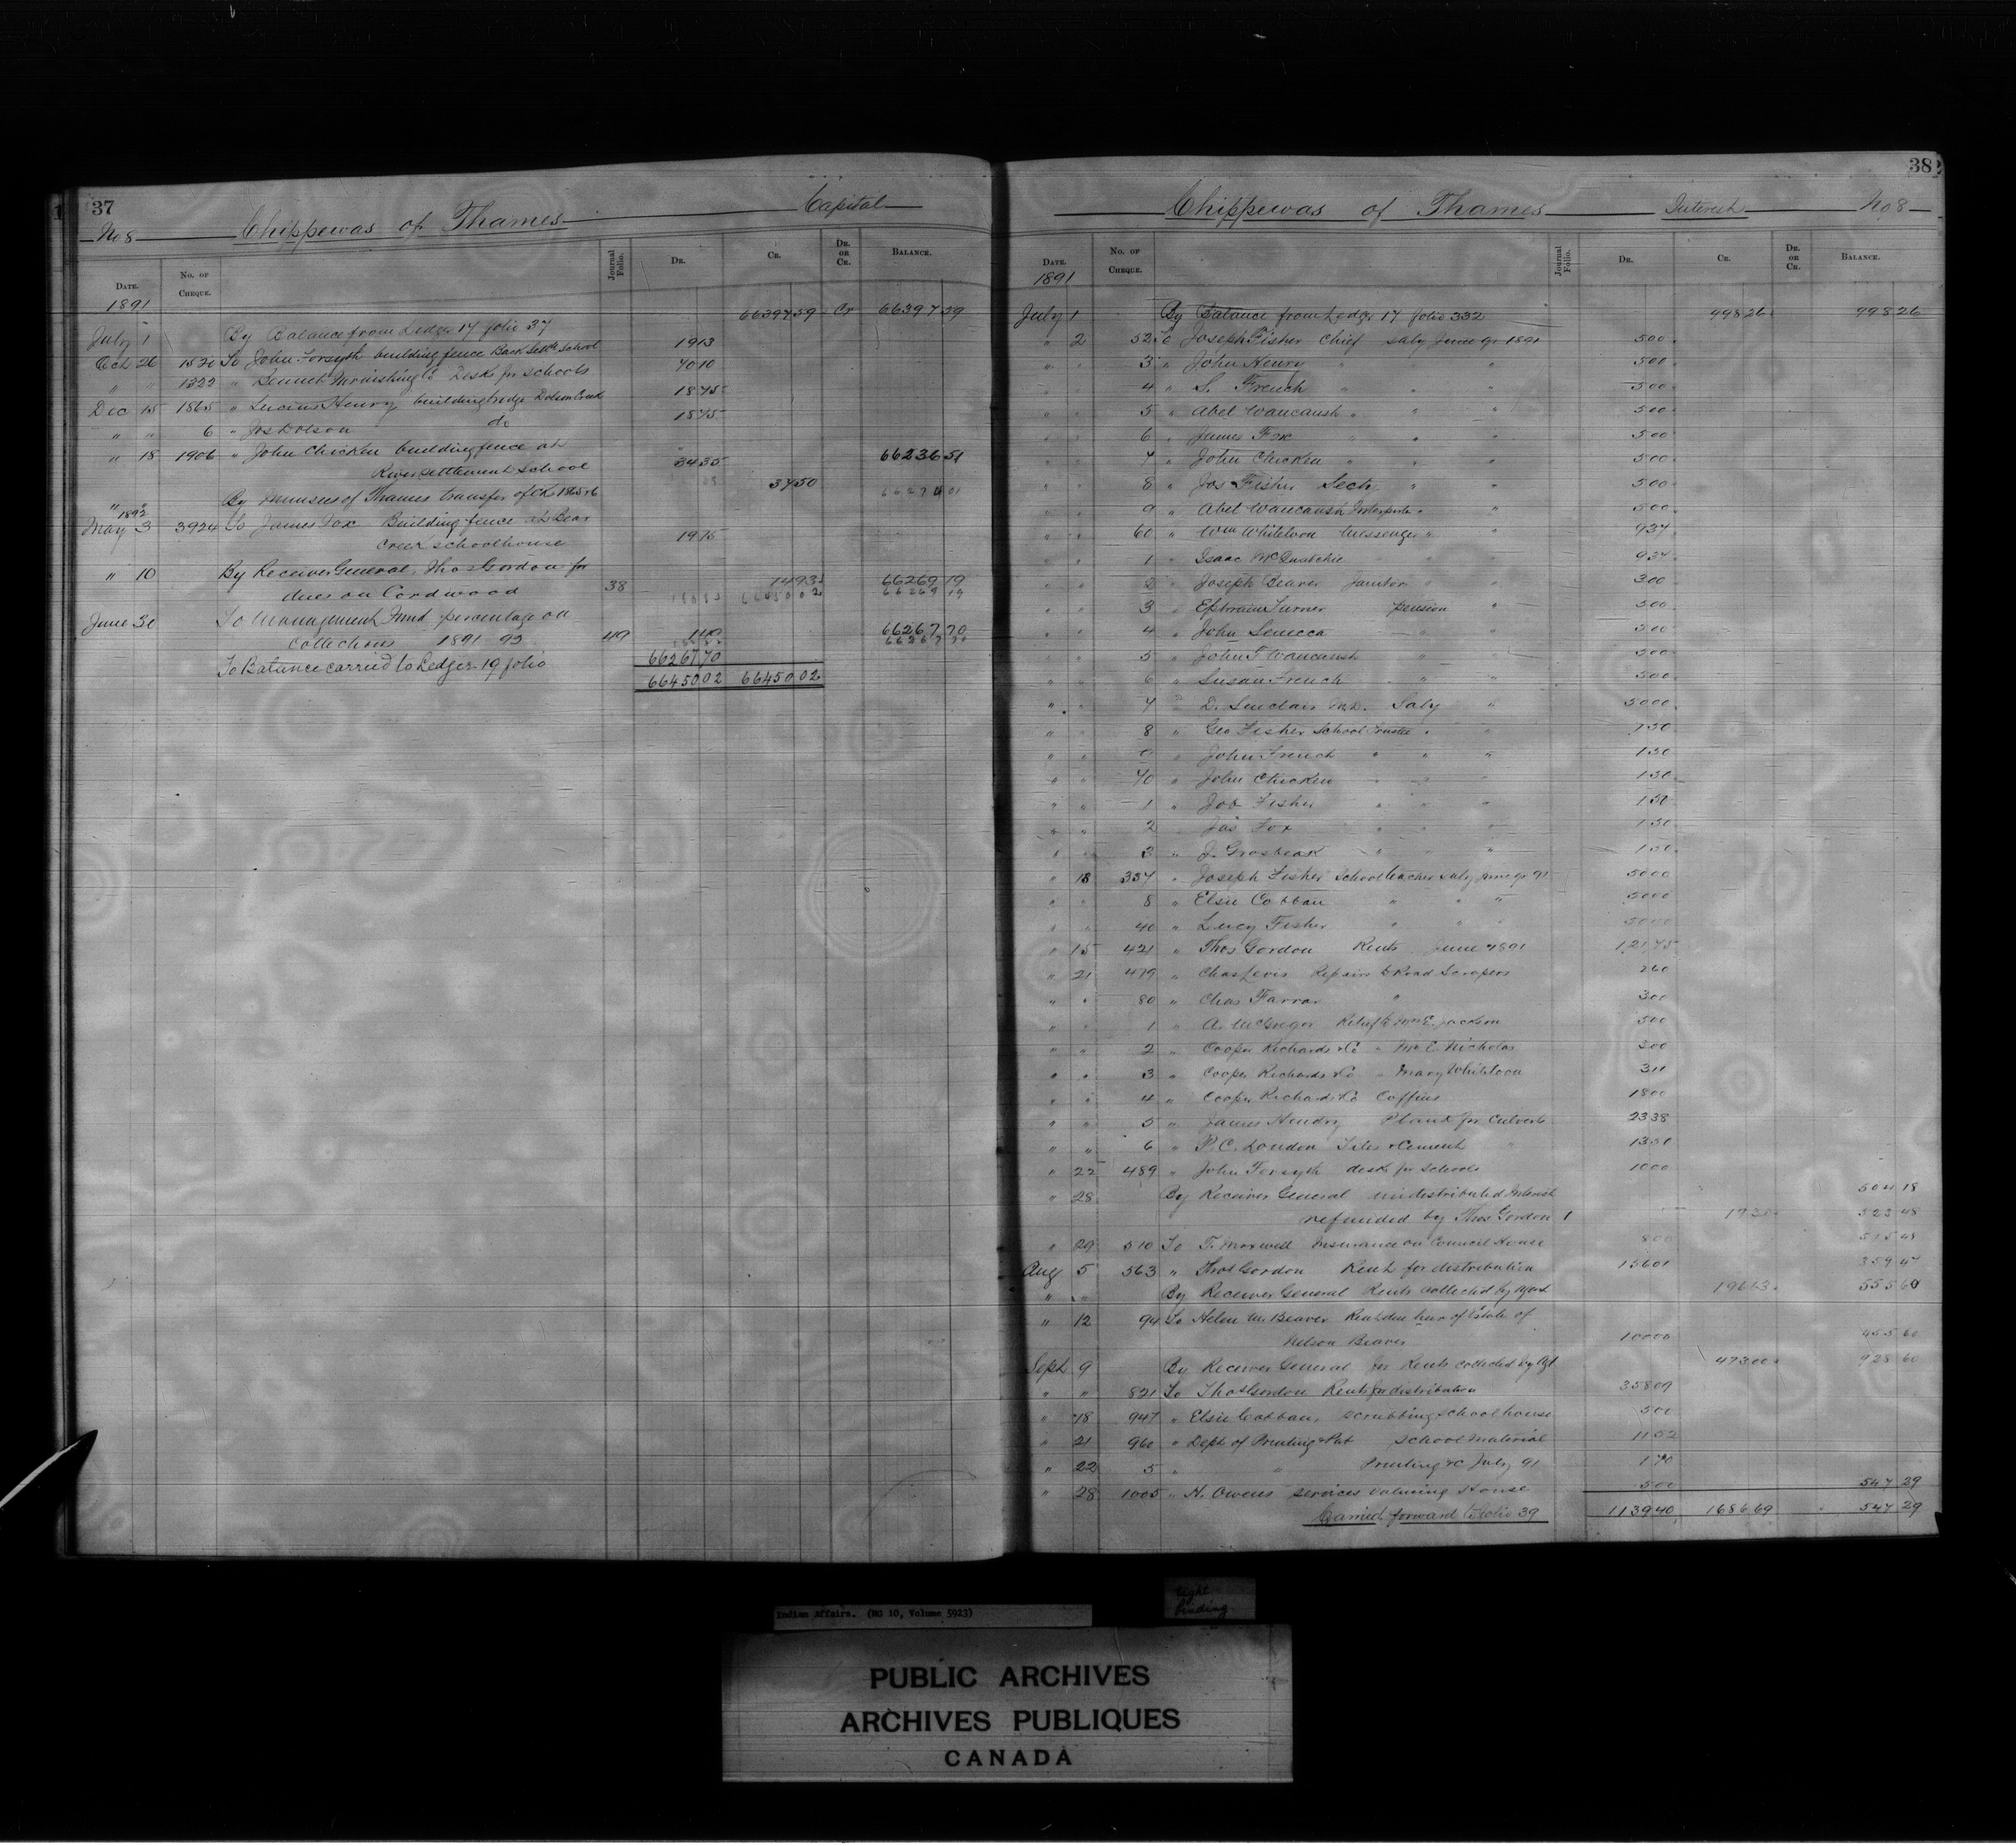 37
No 8 Chippewas of Thames Capital
DATE. No. OF CHEQUE. Journal Folio. DR. CR. DR. OR CR. BALANCE.
1891
July 1 By Balance from Ledger 17 folio 37 66397 59 Cr 66397 59
Oct 26 1520 To John Forsyth building fence Back Settlt School 19 13
" " 1522 " Bennet Furnishing Co Desks for schools 40 10
Dec 15 1865 " Lucius Henry building bridge Dolson Creek 18 75
" " 6 " Jos Dolson do 18 75
" 18 1906 " John Chicken building fence at
River settlement school 34 35 66236 51
" " By Munsees of Thames transfer of Ck 1865 & 6 37 50 66274 01
1892
May 3 3924 To James Fox Building fence at Bear
Creek schoolhouse 19 75
" 10 By Receiver General, Thos Gordon for
dues on Cordwood 38 14 93 66269 19
June 30 To Management Fund percentage on
Collections 1891 92 49 66267 70
To Balance carried to Ledger 19 folio 66267 70
66450 02 66450 02
38
Chippewas of Thames Interest No 8
DATE. No. OF CHEQUE. Journal Folio. DR. CR. DR. OR CR. BALANCE.
1891
July 1 By Balance from Ledger 17 folio 332 998 26 998 26
" 2 52 To Joseph Fisher Chief Saly June qr 1891 5 00
" " 3 " John Henry " " " 5 00
" " 4 " S. French " " " 5 00
" " 5 " Abel Waucaush " " " 5 00
" " 6 " James Fox " " " 5 00
" " 7 " John Chicken " " " 5 00
" " 8 " Jos Fisher Secty " " 5 00
" " 9 " Abel Waucaush Interpreter " " 5 00
" " 60 " Wm Whiteloon Messenger " " 9 37
" " 1 " Isaac McQuatchie " " 9 37
" " 2 " Joseph Beaver Janitor " " 3 00
" " 3 " Ephraim Turner pension " 5 00
" " 4 " John Seneca " " 5 00
" " 5 " John T Waucaush " " 5 00
" " 6 " Susan French " " 5 00
" " 7 " D. Sinclair M.D. Saly " 50 00
" " 8 " Geo Fisher School Trustee " " 1 50
" " 9 " John French " " " 1 50
" " 70 " John Chicken " " " 1 50
" " 1 " Job Fisher " " " 1 50
" " 2 " Jas Fox " " " 1 50
" " 3 " J. Grosbeak " " " 1 50
" 18 337 " Joseph Fisher School teacher saly June qr 91 50 00
" " 8 " Elsie Cobban " " " 50 00
" " 40 " Lucy Fisher " " " 50 00
" 15 421 " Thos Gordon Rents June 1891 121 75
" 21 479 " Chas Levis Repairs to Road Scrapers 2 60
" " 80 " Chas Farrar " 3 00
" " 1 " A. McGregor Relief to Mrs E. Jackson 5 00
" " 2 " Cooper Richards & Co " Mrs C. Nicholas 3 00
" " 3 " Cooper Richards & Co " Mary Whiteloon 3 11
" " 4 " Cooper Richards & Co Coffins 18 00
" " 5 " James Hendry Plank for Culverts 23 38
" " 6 " P. C. London Tiles & Cement 13 50
" 22 489 " John Forsyth desk for schools 10 00
" 28 By Receiver General undistributed Interest 504 18
refunded by Thos Gordon 1 19 30 523 48
" 29 510 To T. Maxwell Insurance on Council House 8 00 515 48
Aug 5 563 " Thos Gordon Rent for distribution 156 01 359 47
" " By Receiver General Rents collected by Agent 196 13 555 60
" 12 94 To Helen M. Beaver Rent due heir of Estate of
Nelson Beaver 100 00 455 60
Sept 9 By Receiver General for Rents collected by Agt 473 00 928 60
" " 821 To Thos Gordon Rents for distribution 358 09
" 18 947 " Elsie Cobban, scrubbing schoolhouse 5 00
" 21 960 " Dept of Printing & Pub School Material 11 52
" 22 5 " " Printing &c July 91 1 70
" 28 1005 " N. Owens services valuing House 5 00 547 29
Carried forward to folio 39 1139 40 1686 69 547 29
Indian Affairs. (RG 10, Volume 5923)
tight
binding
PUBLIC ARCHIVES
ARCHIVES PUBLIQUES
CANADA